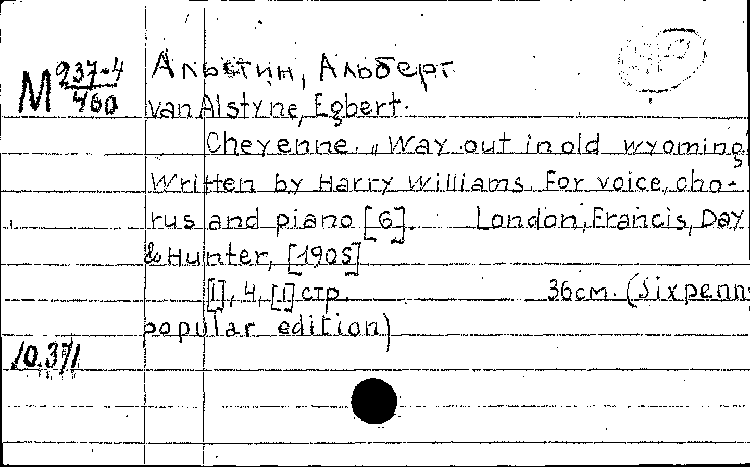 М 237-4/460
Альстин, Альберт
van Alstyne, Egbert.
Cheyenne. „Way out in old wyoming
Written by Harry Williams. For voice, cho-
rus and piano [6]. London, Francis, Day
& Hunter, [1905]
[1], 4, [1] стр. 36см. (Sixpenn
popular edition)
10.371